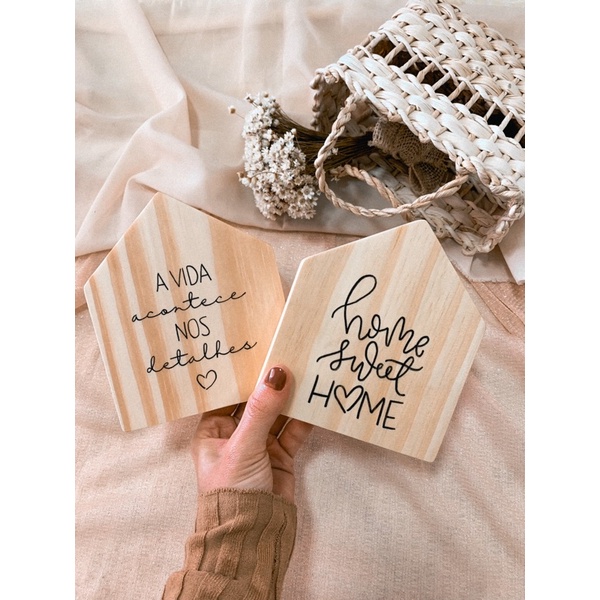 A VIDA
acontece
NOS
detalhes
home
sweet
HOME